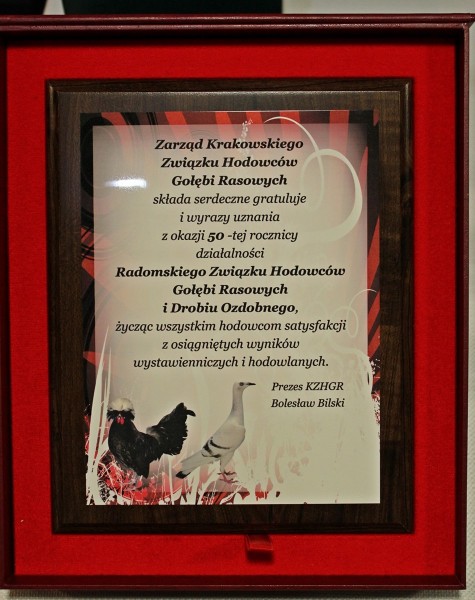 Zarząd Krakowskiego
Związku Hodowców
Gołębi Rasowych
składa serdeczne gratuluje
i wyrazy uznania
z okazji 50 -tej rocznicy
działalności
Radomskiego Związku Hodowców
Gołębi Rasowych
i Drobiu Ozdobnego,
życząc wszystkim hodowcom satysfakcji
z osiągniętych wyników
wystawienniczych i hodowlanych.
Prezes KZHGR
Bolesław Bilski